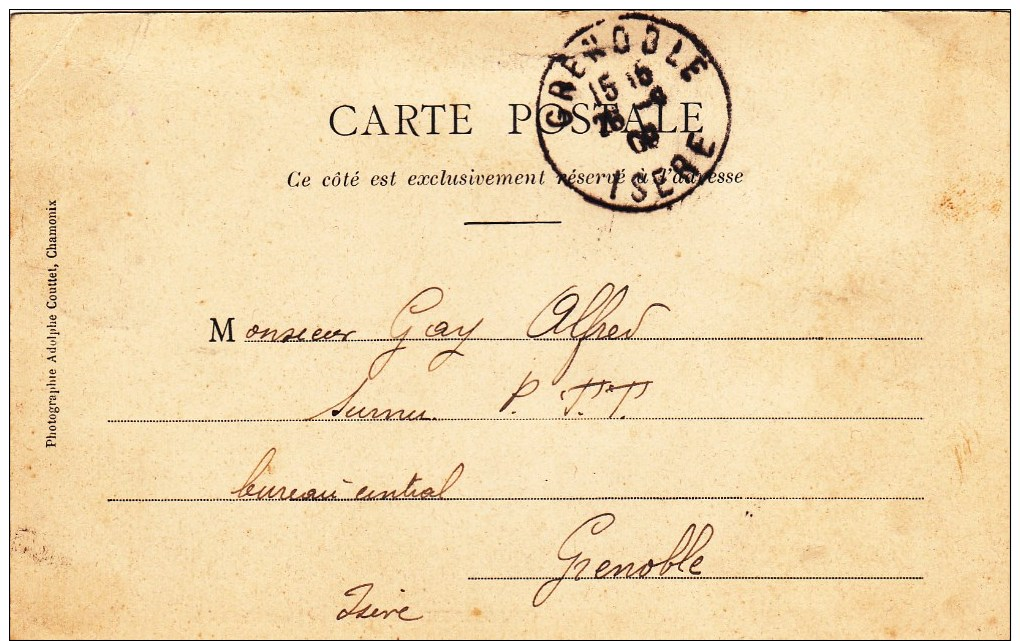 GRENOBLE
15 15
ISERE
CARTE POSTALE
Ce côté est exclusivement réservé à l'adresse
Photographie Adolphe Couttet, Chamonix
Monsieur Gay Alfred
Surnu. P. T. T.
bureau central
Grenoble
Isère